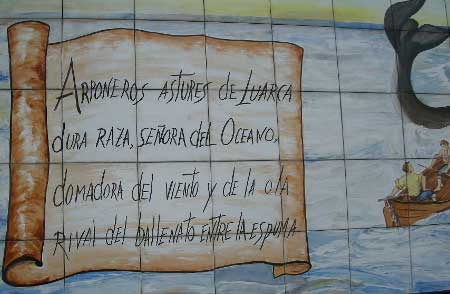 Arponeros astures de Luarca
dura raza, señora del Oceano,
domadora del viento y de la ola
Rival del ballenato entre la espuma